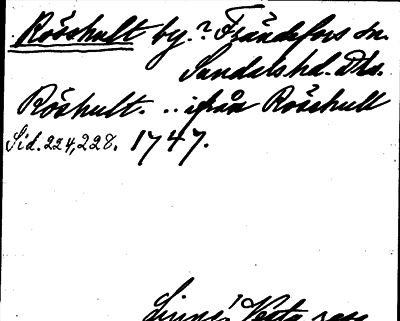 Röshult by.? Frändefors sn.
Sundals hd. Dls.
Röshult. .. ifrån Röshult
Sid. 224, 228. 1747.
Linné, Västg. resa